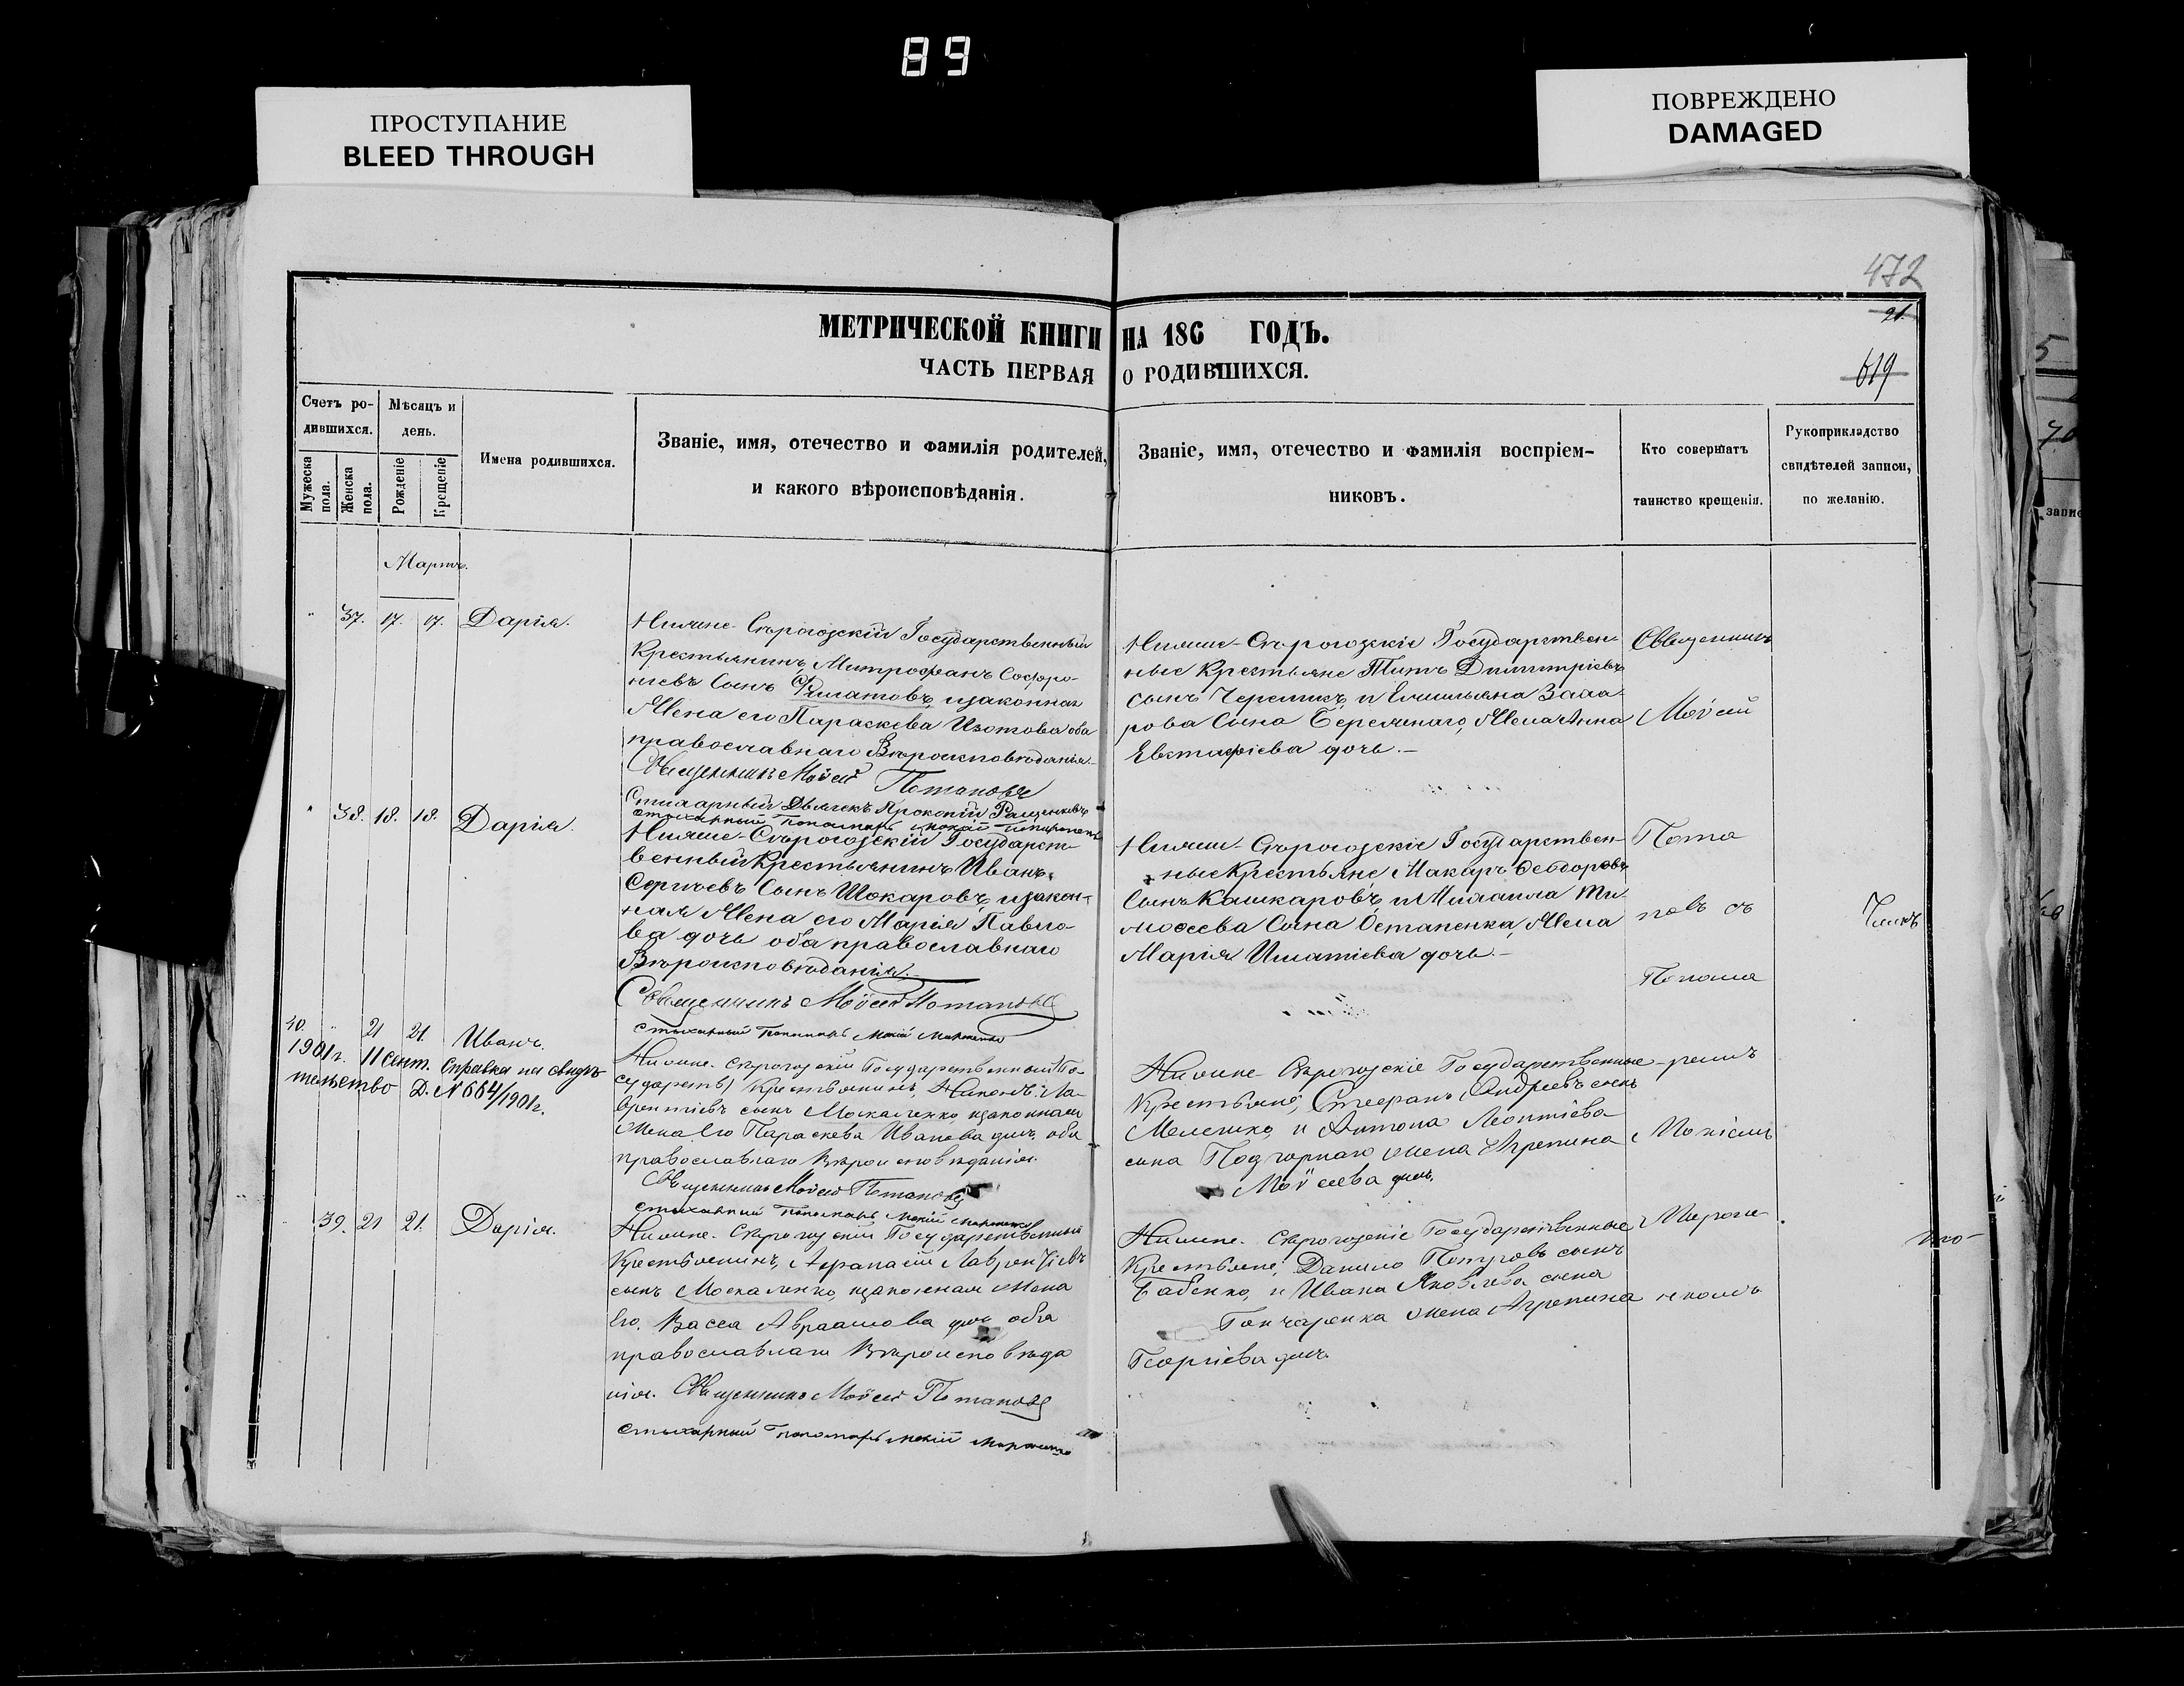 89
ПРОСТУПАНИЕ
BLEED THROUGH
ПОВРЕЖДЕНО
DAMAGED
472
21.
619
МЕТРИЧЕСКОЙ КНИГИ НА 186 ГОДЪ.
ЧАСТЬ ПЕРВАЯ О РОДИВШИХСЯ.
Счетъ ро-
дившихся.
Мужеска пола.
Женска пола.
Мѣсяцъ и
день.
Рожденіе
Крещеніе
Имена родившихся.
Званіе, имя, отечество и фамилія родителей,
и какого вѣроисповѣданія.
Званіе, имя, отечество и фамилія воспріем-
никовъ.
Кто совершатъ
таинство крещенія.
Рукоприкладство
свидѣтелей записи,
по желанію.
Мартъ.
37. 17. 17. Дарія.
Нижне-Сѣрогозскій Государственный
Крестьянинъ, Митрофанъ Софро-
ніевъ Сынъ Филатовъ, изаконная
Жена его Параскева Изотова оба
православнаго Вѣроисповѣданія.
Священникъ Моѵсей Потаповъ
Стихарный Дьячекъ Прокопій
стихарный Пономарь Мокій
Нижне-Сѣрогозскіе Государствен-
ные Крестьяне Титъ Димитріевъ
сынъ Черепикъ, и Емильяна Заха-
рова Сына Бережнаго, Жена Анна
Евстафіева дочь.-
Священникъ
Моѵсей
38. 18. 18. Дарія.
Нижне-Сѣрогозскій Государст-
венный Крестьянинъ Иванъ
Сергѣевъ Сынъ Шокаровъ, изакон-
ная Жена его Марія Павло-
ва дочь оба православнаго
Вѣроисповѣданія.-
Священникъ Моѵсей Потаповъ
стихарный Пономарь Мокій
Нижне-Сѣрогозскіе Государствен-
ные Крестьяне Макаръ Ѳеодоровъ
Сынъ Кашкаровъ, и Михаила Ти-
моѳеева Сына Остапенка, Жена
Марія Игнатіева дочь.-
Пота
повъ съ
Понома
40. 21 21. Иванъ.
1901г. 11 сент. Справка на свидѣ-
тельство Д. № 664/1901г.
Нижне-Сѣрогозскій Государственный (Го-
сударств) Крестьянинъ, Никонъ Ла-
врентіевъ сынъ Москаленко, изаконная
Жена Его Параскева Иванова дочь, оба
православнаго Вѣроисповѣданія.
Священникъ Моѵсей Потаповъ
стихарный Пономарь Мокій
Нижне-Сѣрогозскіе Государственные
Крестьяне, Стефанъ Андреевъ сынъ
Мелешко, и Антона Леонтіева
сына Подгорнаго жена Агрепина
Моѵсеева дочь.
ремъ
Мокіемъ
39. 21 21. Дарія.
Нижне-Сѣрогозскій Государственный
Крестьянинъ, Афанасій Лаврентіевъ
сынъ Москаленко, изаконная Жена
Его. Васса Авраамова дочь оба
православнаго Вѣроисповѣда
нія. Священникъ Моѵсей Потаповъ
стихарный Пономарь Мокій
Нижне-Сѣрогозскіе Государственные
Крестьяне, Данило Петровъ сынъ
Бабенко, и Ивана Яковлева сына
Гончаренка жена Агрепина
Георгіева дочь.